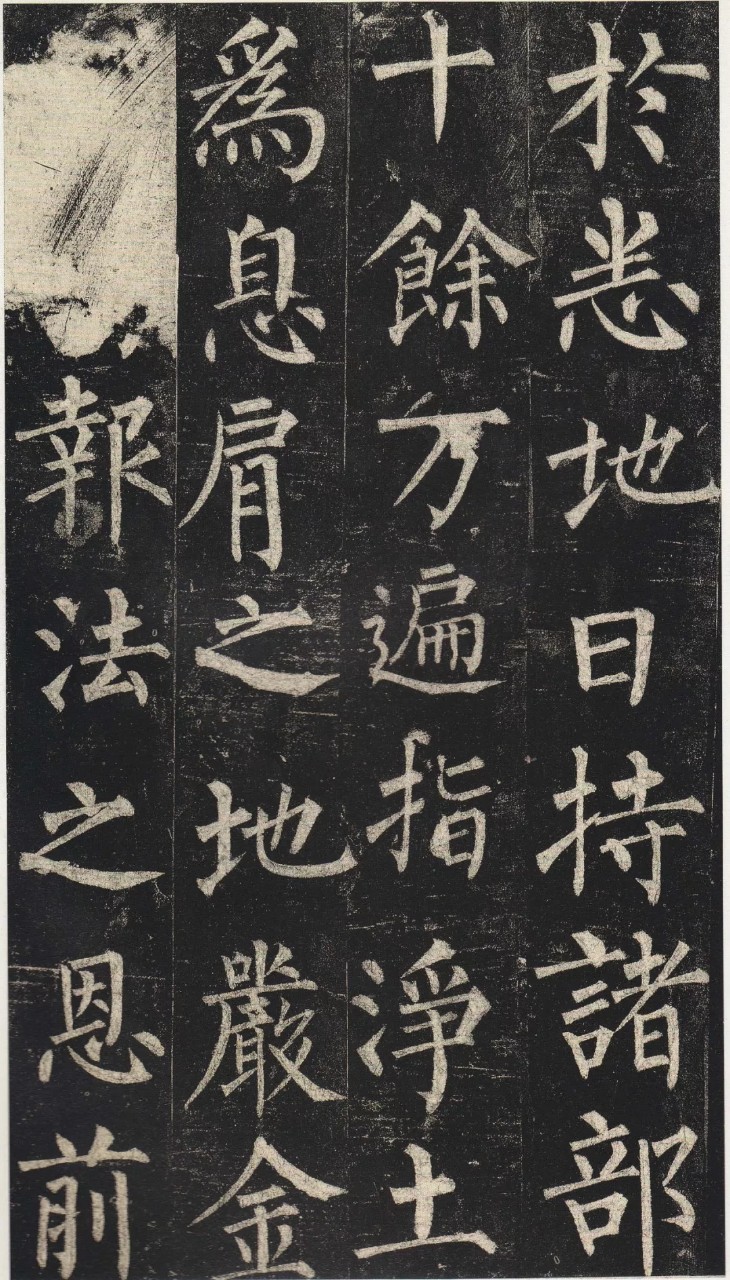 於悉地日持諸部
十餘万遍指淨土
為息肩之地嚴金
報法之恩前